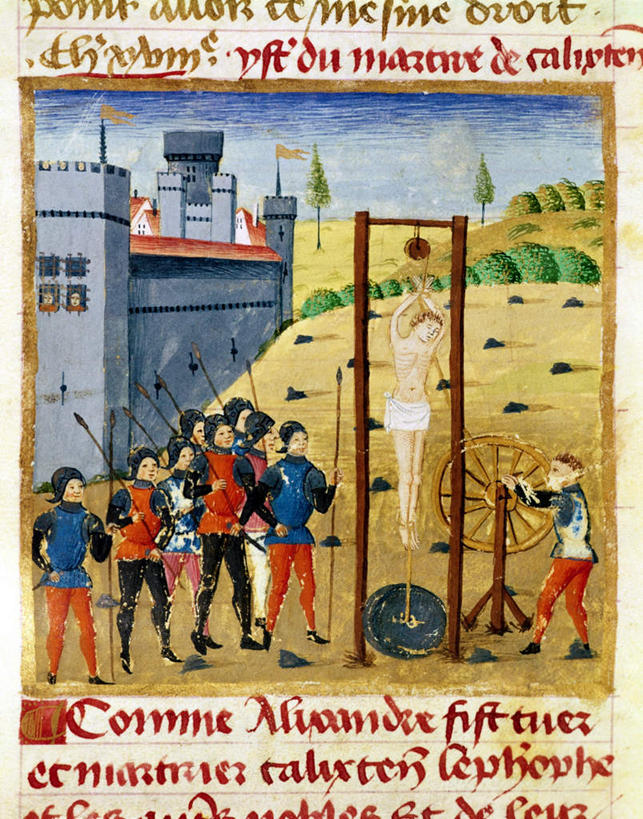 point avoir ce mesme droit.
.Ch'xviij^e. yst' du martire de calixten
Comme Alixandre fist tuer
et martrier calixten le phōphe
et les autres nobles Et de leur